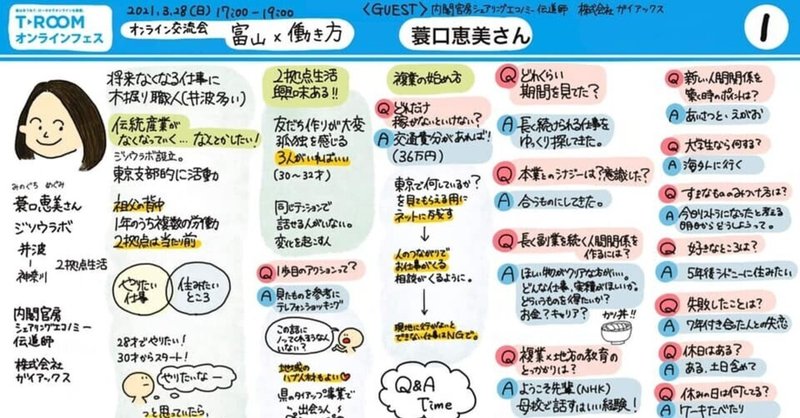 T・ROOM
オンラインフェス
2021.3.28(日) 17:00-19:00
オンライン交流会
富山×働き方
〈GUEST〉内閣官房シェアリングエコノミー伝道師 株式会社ガイアックス
蓑口恵美さん
1
みのぐち めぐみ
蓑口恵美さん
ジソウラボ
井波
神奈川
2拠点生活
内閣官房
シェアリングエコノミー
伝道師
株式会社
ガイアックス
将来なくなる仕事に
木掘り職人(井波多い)
伝統産業が
なくなっていく…なんとかしたい!
ジソウラボ設立。
東京支部的に活動
祖父の背中
1年のうち複数の労働
2拠点は当たり前
やりたい
仕事
住みたい
ところ
28才でやりたい!
30才からスタート!
やりたいなー
と思っていたら、
2拠点生活
興味ある!!
友だち作りが大変
孤独を感じる
3人がいればいい
(30〜32才)
同じテンションで
話せる人がいない。
変化を起こす人
Q 1歩目のアクションって?
A 見たものを参考に
テレフォンショッキング
この話に
ノッてくれそうな人
いない?
地域の
ハブ人材もよい
県のタイアップ事業で
出会う人
複業の始め方
Q どれだけ
稼がないといけない?
A 交通費分があれば!
(36万円)
東京で何しているか?
を見てもらえる用に
ネットに万発す
人のつながりで
お仕事がくる
相談がくるように。
現地に行がないと
できない仕事はNGで。
Q&A
Time
Q どれくらい
期間を見てた?
A 長く続けられる仕事を
ゆっくり探してきた。
Q 本業とのシナジーは?意識した?
A 合うものにしてきた。
Q 長く副業を続く人間関係を
作るには?
A ほしい物がクリアな方がいい。
どんな仕事、実績がほしいか。
どういうものを得たいか?
お金?キャリア?
カツ丼!!
Q 複業×地方の教育の
とっかかりは?
A ようこそ先輩(NHK)
母校と話すはいい経験!
Q 新しい人間関係を
築く時のポイントは?
A あいさつと、えがお
Q 大学生なら何する?
A 海外に行く
Q すきなもののみつけ方は?
A 今日リストラになったと考える
明日からどうしようって。
Q 好きなところは?
A 5年後シドニーに住みたい
Q 失敗したことは?
A 7年付き合た人との失恋
Q 休日はある?
A ある、土日含めて
Q 休みの日は何してる?
A ケーキたべた